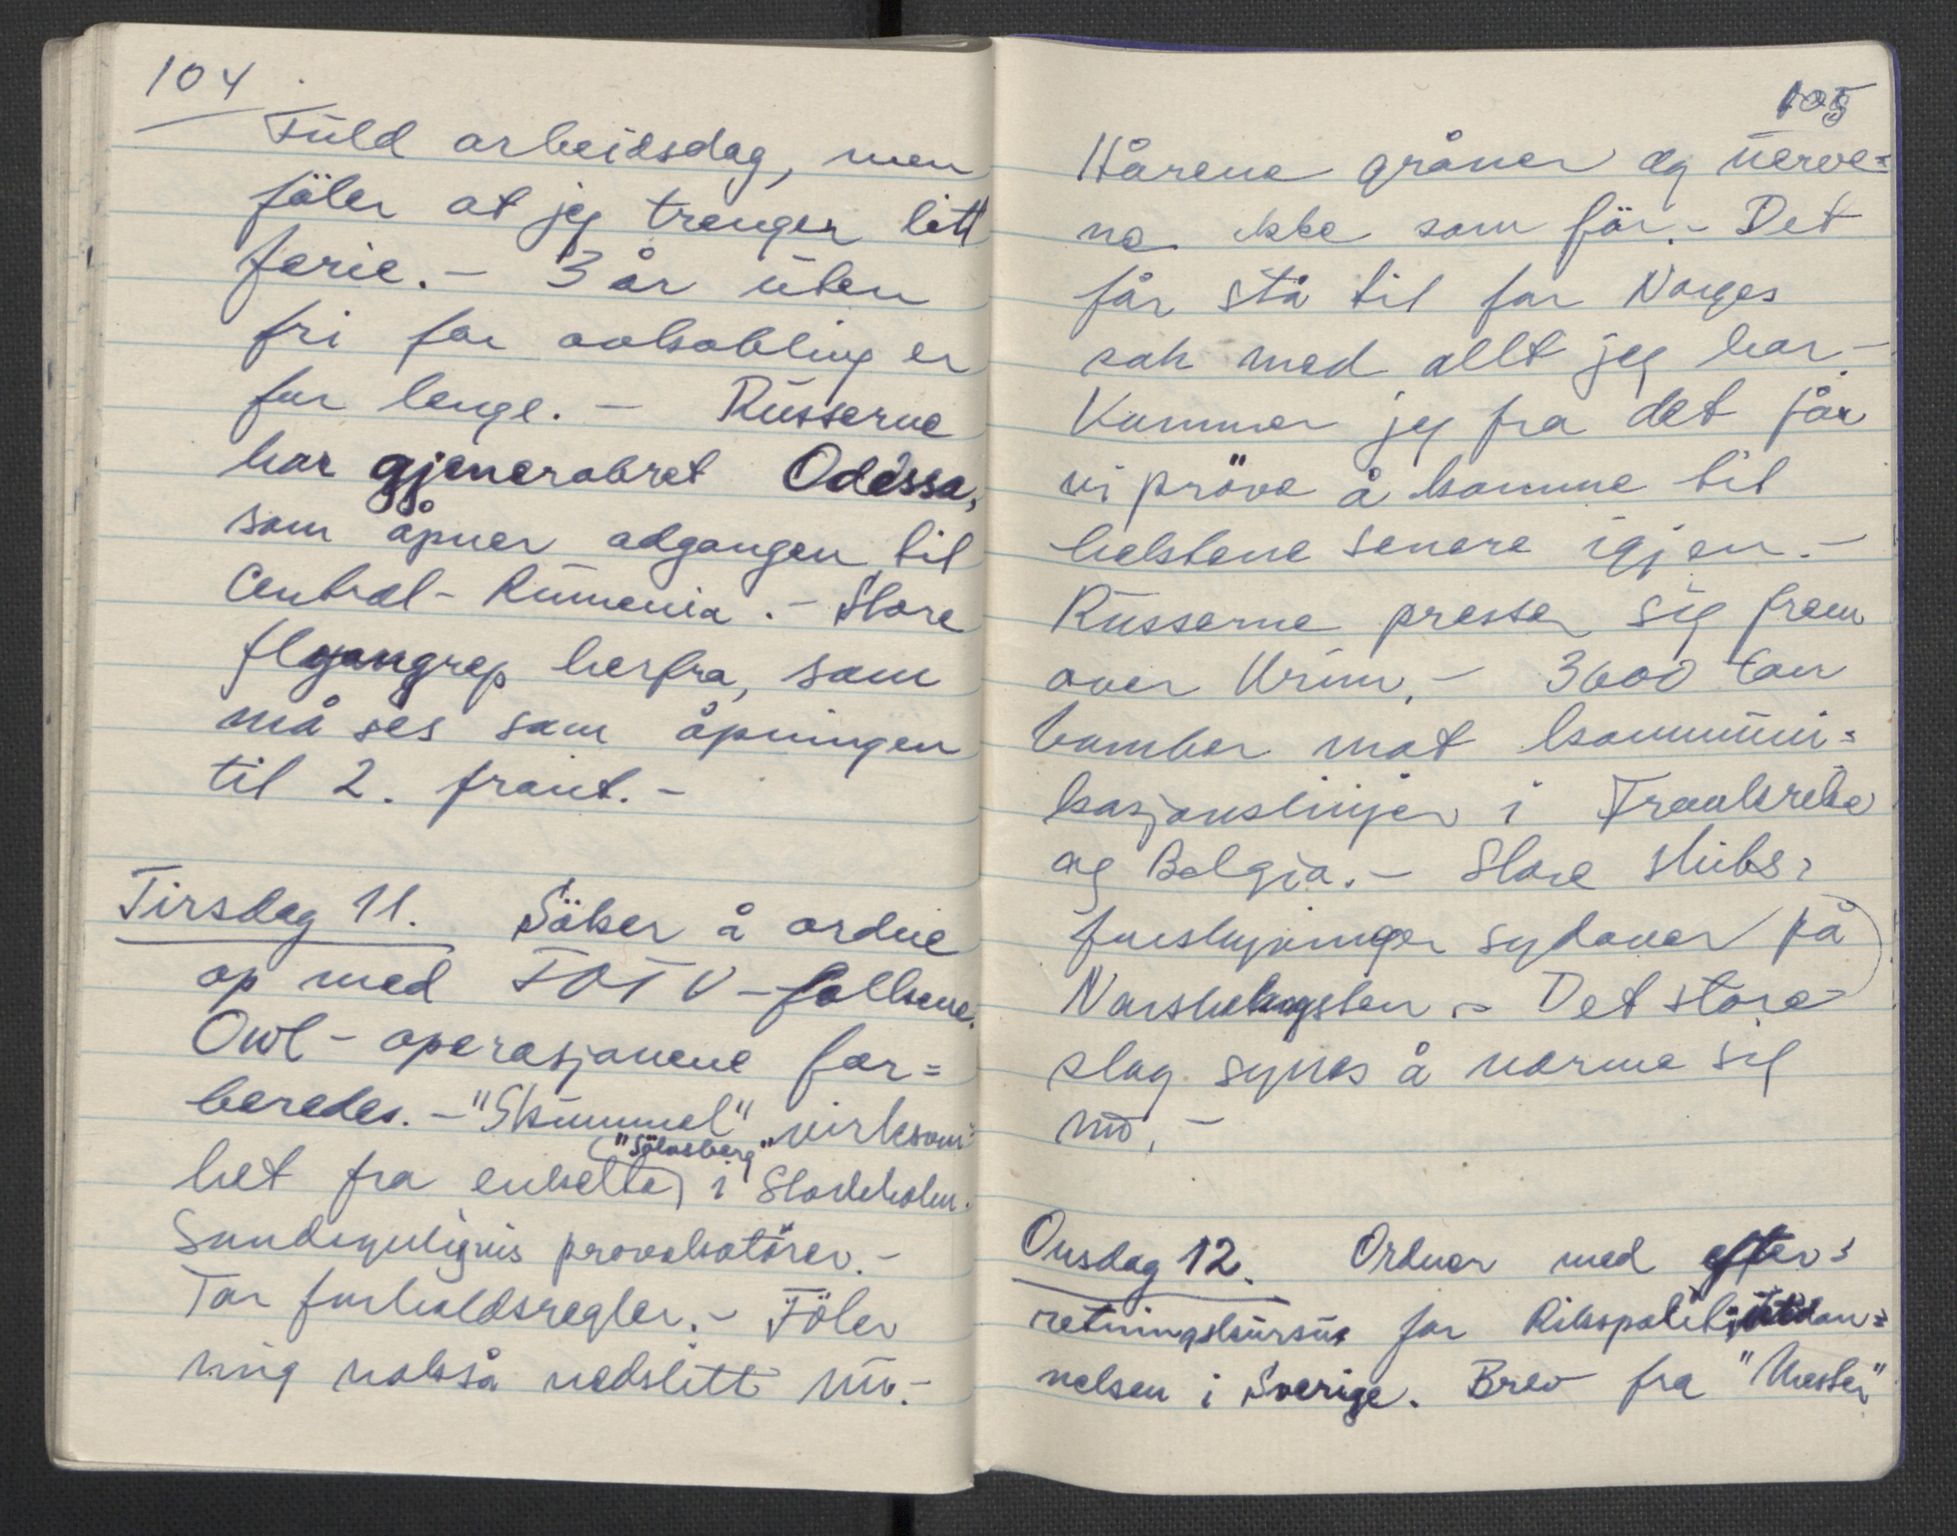 104
Fuld arbeidsdag, men
föler at jeg trenger litt
ferie. - 3 år uten
fri for avkobling er
for lenge. - Russerne
har gjenerobret Odessa,
som åpner adgangen til
Central-Rumenia. - Store
flyangrep herfra, som
må ses som åpningen
til 2. front. -
Tirsdag 11. Söker å ordne
op med FOTV-folkene.
Owl-operasjonene for=
beredes. - "Skummel" virksom=
"Sölvsberg"
het fra enkelte i Stockholm.
Sandsynligvis provokatörer. -
Tar forholdsregler. - Föler
mig nokså nedslitt nu. -
105
Hårene gråner og nerve=
ne ikke som för. - Det
får stå til for Norges
sak med allt jeg har. -
Kommer jeg fra det får
vi pröve å komme til
hektene senere igjen. -
Russerne presser sig frem
over Krim. - 3600 ton
bomber mot kommuni=
kasjonslinjer i Frankrike
og Belgia. - Store skibs=
forskyvninger sydover på
Norskekysten. - Det store
slag synes å nærme sig
nu. -
Onsdag 12. Ordner med efter=
retningskursus for Rikspolitiutdan=
nelsen i Sverige. Brev fra